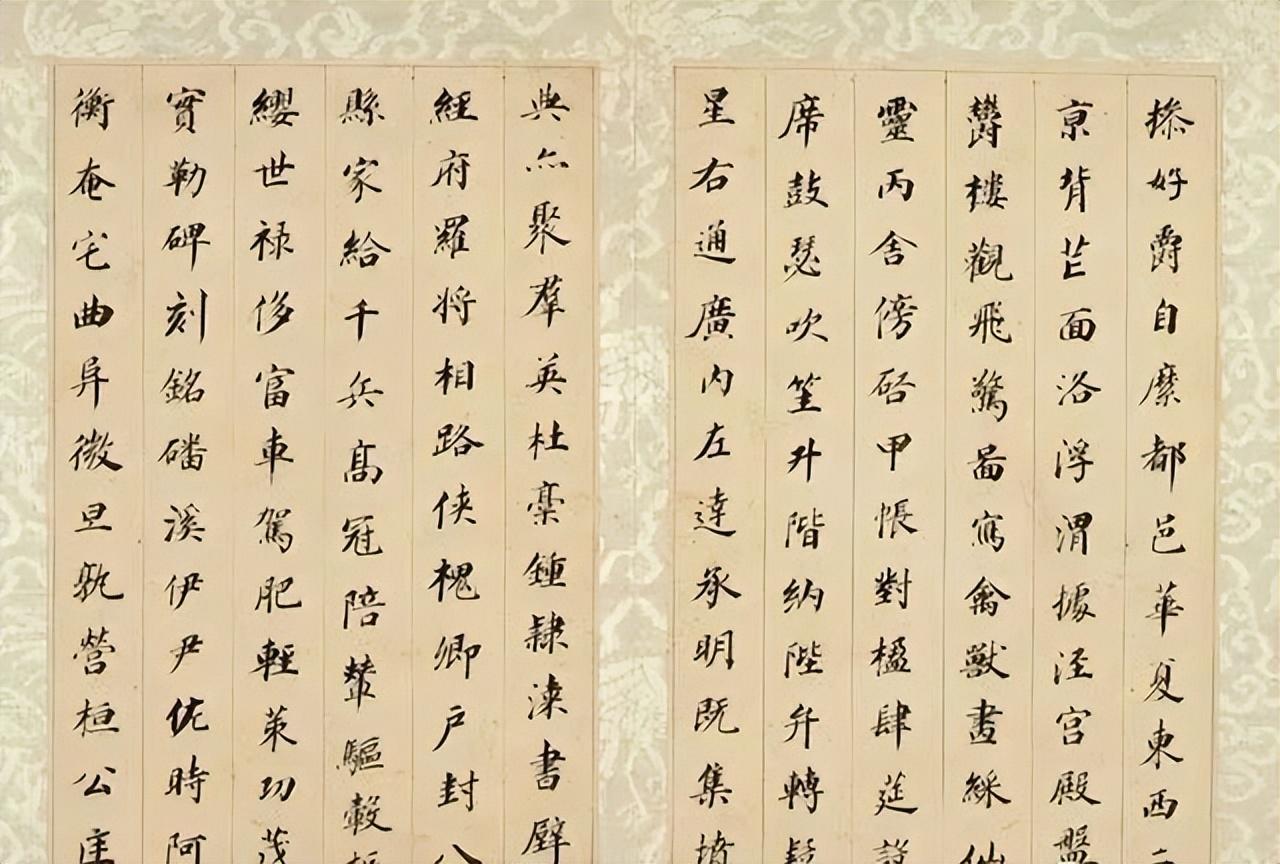 捺好爵自縻都邑華夏東西二
京背芒面洛浮渭據涇宮殿盤
欝樓觀飛驚啚寫禽獸畫綵仙
靈丙舍傍啓甲帳對楹肆莚設
席鼓瑟吹笙升階納陛弁轉疑
星右通廣內左達承明既集墳
典亦聚羣英杜稾鍾隸漆書壁
經府羅將相路俠槐卿戶封八
縣家給千兵髙冠陪輦驅轂振
纓世祿侈富車駕肥輕策功茂
實勒碑刻銘磻溪伊尹佐時阿
衡奄宅曲阜微旦孰營桓公匡